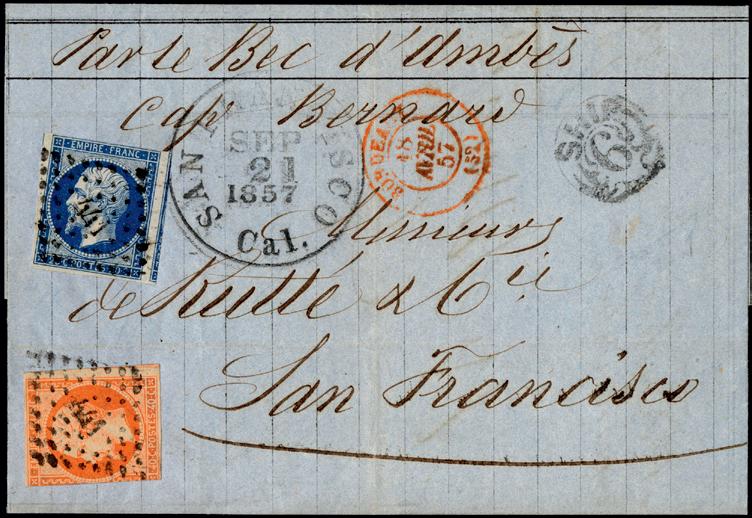 Par le Bec d'Ambès
cap Bernard
SAN FRANCISCO
SEP
21
1857
Cal.
BORDEAUX
18
AVRIL
57
(32)
SHIP
6
EMPIRE FRANC
Messieurs
de Rutté & Cie
San Francisco